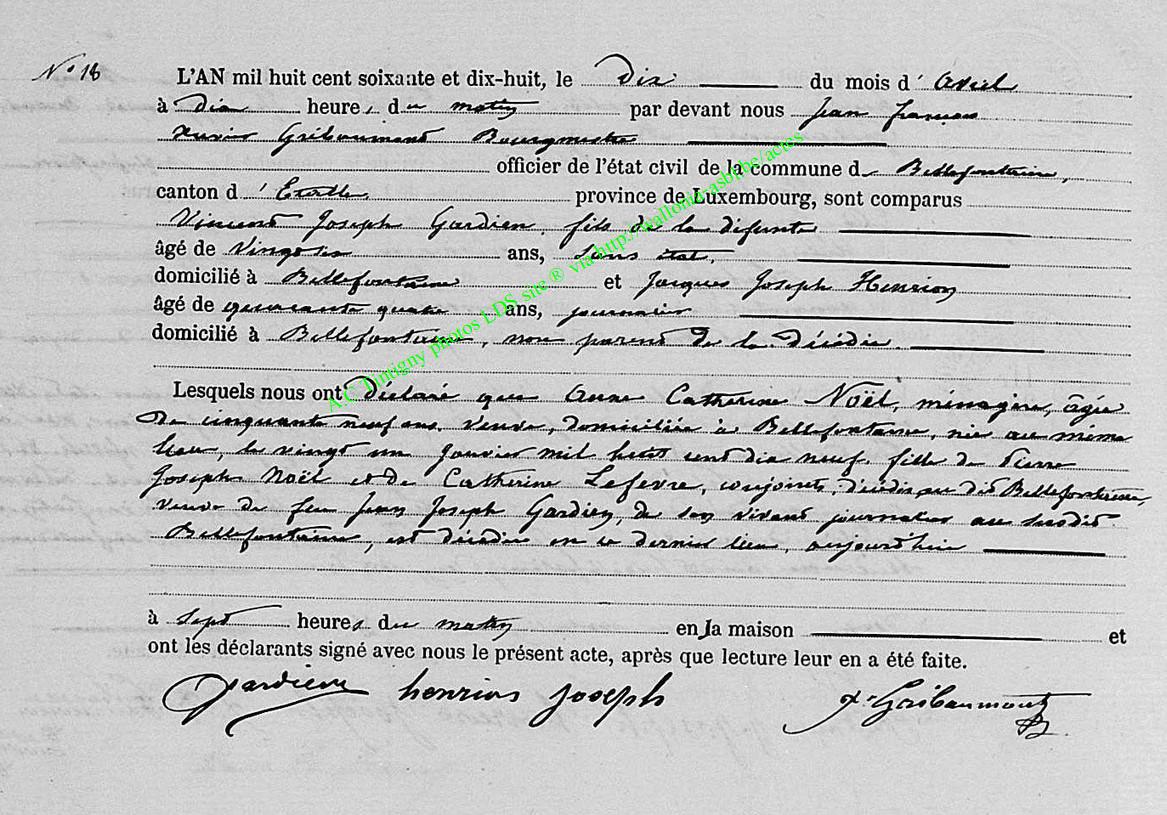 N° 18
L'AN mil huit cent soixante et dix-huit, le dix du mois d' avril
à dix heures du matin par devant nous Jean françois
xavier Gribaumont Bourgmestre
officier de l'état civil de la commune de Bellefontaine,
canton d' Etalle province de Luxembourg, sont comparus
Vincent Joseph Gardien, fils de la défunte
âgé de vingt six ans, sans état,
domicilié à Bellefontaine et Jacques Joseph Henrion
âgé de quarante quatre ans, journalier
domicilié à Bellefontaine, non parent de la décédée.
Lesquels nous ont déclaré que Anne Catherine Noël, ménagère, âgée
de cinquante neuf ans, veuve, domiciliée à Bellefontaine, née au même
lieu, le vingt un janvier mil huit cent dix neuf, fille de Pierre
Joseph Noël et de Catherine Lefevre, conjoints, décédés au dit Bellefontaine,
veuve de feu Jean Joseph Gardien, de son vivant journalier au susdit
Bellefontaine, est décédée en ce dernier lieu, aujourd'hui
à sept heures du matin en la maison et
ont les déclarants signé avec nous le présent acte, après que lecture leur en a été faite.
Gardien henrion Joseph x. Gribaumont
A.C Tintigny photos LDS site ® via http://wallonia-asbphe/actes